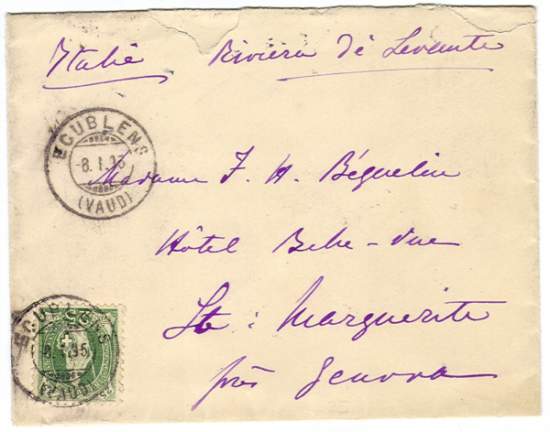 Italie Riviera di Levante
ECUBLENS
-8.I.95
(VAUD)
Madame F. H. Béguelin
Hôtel Belle-Vue
Ste: Marguerite
près Genova
ECUBLENS
8.I.95
(VAUD)
25